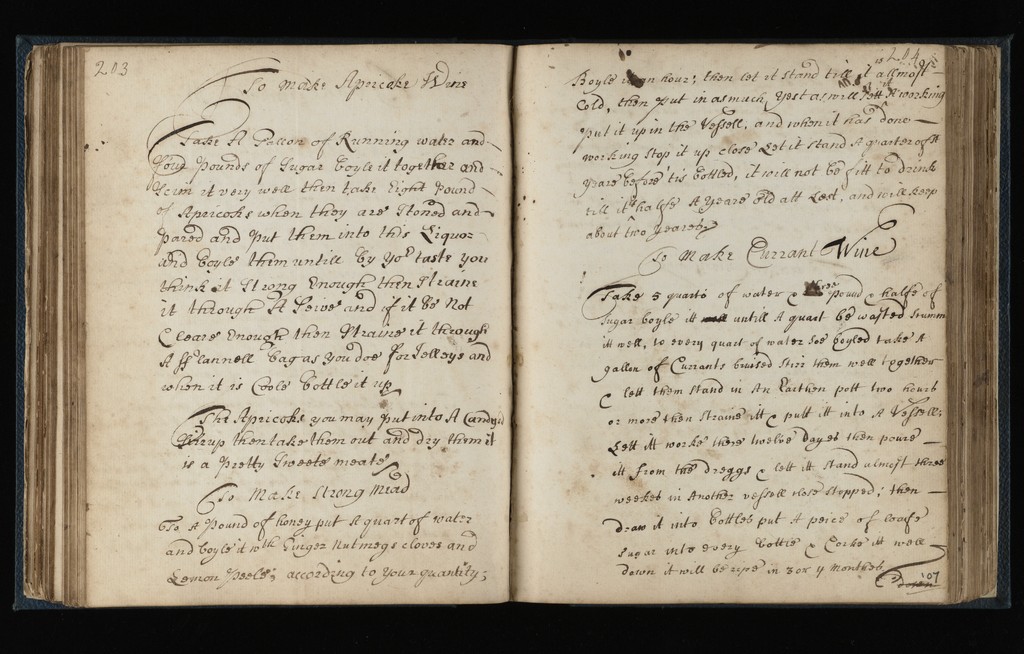 203
To Make Apricake Wine
Take A Gallon of Running water and
four Pounds of Sugar boyle it together and
Scim it very well then take Eight Pound
of Apricoks when they are Stoned and
pared and put them into this Liquor
and boyle them untill by yor taste you
think it Strong Enough then Straine
it through A Seive and if it be Not
Cleare Enough then Straine it through
A fflannell bag as you doe for Jelleys and
when it is Coole bottle it up
The Apricoks you may put into A Candyd
Sirrup then take them out and dry them it
is a Pretty Sweete meate
To Make Strong Mead
To A Pound of honey put A quart of water
and boyle it wth Ginger Nutmegs cloves and
Lemon Peele; according to your quantity;
204
Boyle it an hour; then let it stand till it is allmost
Cold, then put in as much yest as will sett it A working
put it up in the Vessell, and when it has done
working stop it up close Let it stand A quarter of A
yeare before tis bottled, it will not be fitt to drink
till it halfe A yeare old att Lest, and will keep
about two yeares
To Make Currant Wine
Take 5 quarts of water & three pound & halfe of
Sugar boyle itt untill A quart be wasted Scumm
itt well, to every quart of water soe boyled take A
gallon of Currants bruised stirr them well together
& lett them stand in An Earthen pott two hours
or more then straine itt & putt itt into A Vessell;
Lett itt worke there twelve Dayes then poure
itt from the dreggs & lett itt stand almost three
weekes in Another vessell close stopped; then
draw it into bottles put A peice of loafe
Sugar into every bottle & Corke itt well
down it will be ripe in 3 or 4 monthes